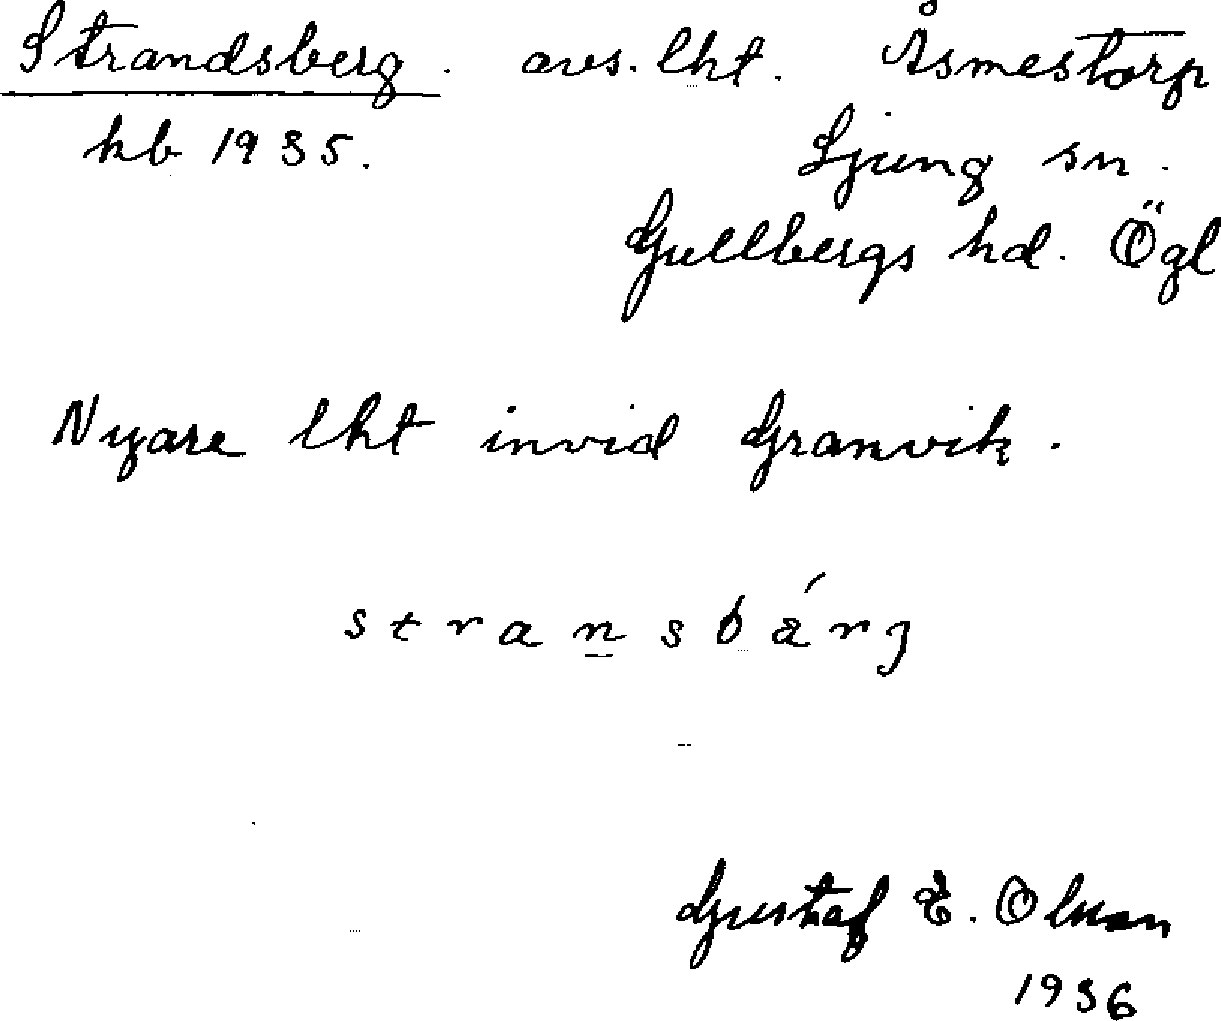 Strandsberg. avs. lht. Åsmestorp
kb 1935. Ljung sn.
Gullbergs hd. Ögl
Nyare lht invid Granvik.
stransbärj
Gustaf E. Olsson
1936